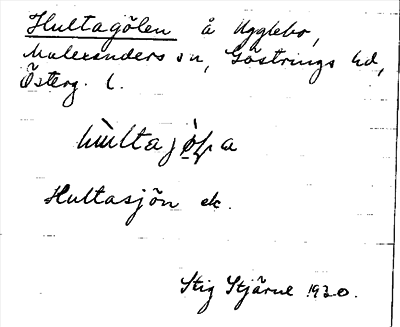 Hultagölen å Ugglebo,
Malexanders sn, Göstrings hd,
Österg. l.
Hultasjön ek.
Stig Stjärne 1930.